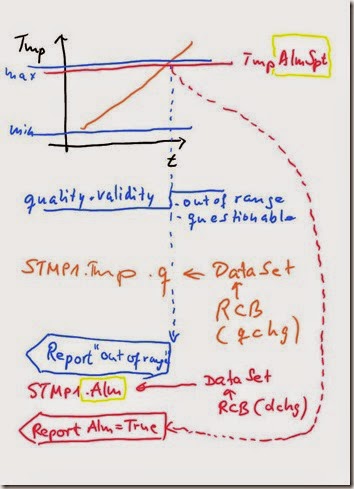 Tmp
max
Tmp AlmSpt
min
t
quality.validity
- out of range
- questionable
STMP1.Tmp.q ← DataSet
RCB
(qchg)
Report "out of range"
STMP1.Alm ← DataSet
RCB (dchg)
Report Alm=True